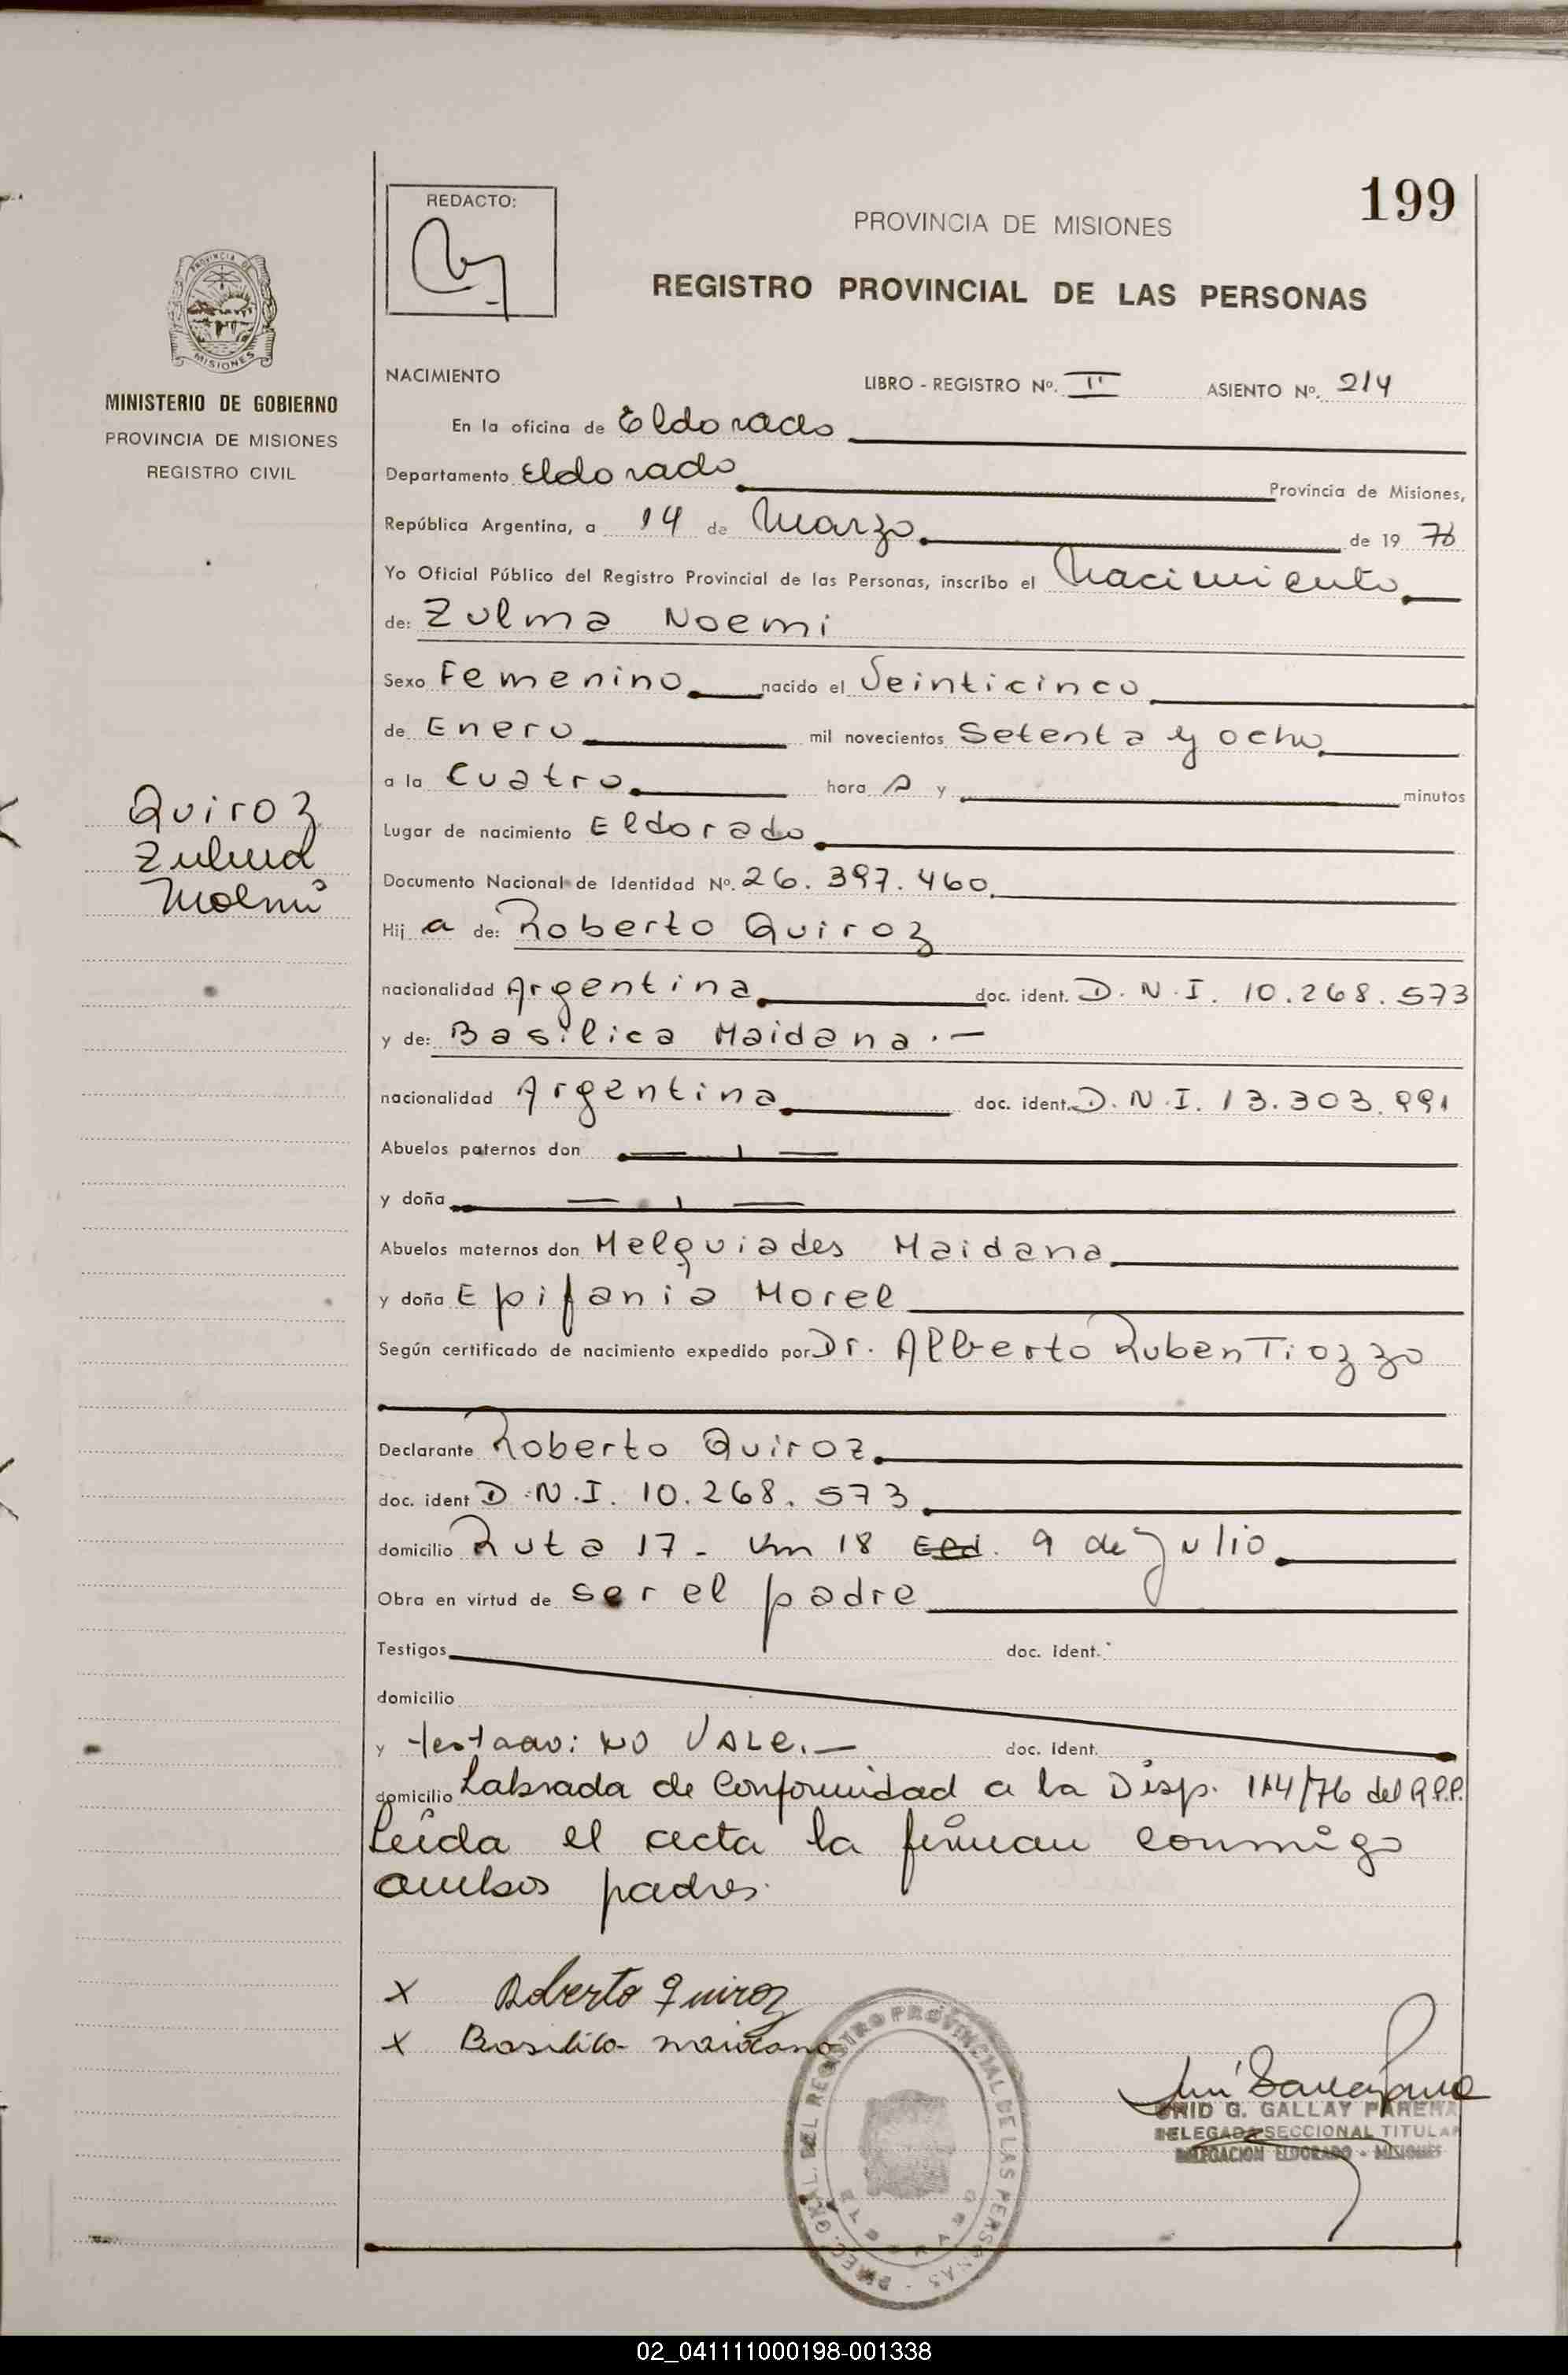 199
REDACTO:
PROVINCIA DE MISIONES
REGISTRO PROVINCIAL DE LAS PERSONAS
PROVINCIA DE
MISIONES
MINISTERIO DE GOBIERNO
PROVINCIA DE MISIONES
REGISTRO CIVIL
NACIMIENTO LIBRO - REGISTRO Nº. II ASIENTO Nº. 214
En la oficina de Eldorado
Departamento Eldorado Provincia de Misiones,
República Argentina, a 14 de Marzo de 19 78
Yo Oficial Público del Registro Provincial de las Personas, inscribo el Nacimiento
de: Zulma Noemi
Sexo Femenino nacido el Veinticinco
de Enero mil novecientos Setenta y ocho
a la Cuatro hora s y minutos
Quiroz
Zulma
Noemi
Lugar de nacimiento Eldorado
Documento Nacional de Identidad Nº. 26.397.460
Hij a de: Roberto Quiroz
nacionalidad Argentina doc. ident. D.N.I. 10.268.573
y de: Basilica Maidana.-
nacionalidad Argentina doc. ident. D.N.I. 13.303.991
Abuelos paternos don
y doña
Abuelos maternos don Melquiades Maidana
y doña Epifania Morel
Según certificado de nacimiento expedido por Dr. Alberto Ruben Tiozzo
Declarante Roberto Quiroz
doc. ident D.N.I. 10.268.573
domicilio Ruta 17 - Km 18 Eld. 9 de Julio
Obra en virtud de ser el padre
Testigos doc. ident.
domicilio
y testado: NO VALE.- doc. ident.
domicilio Labrada de Conformidad a la Disp. 114/76 del R.P.P.
Leida el acta la firman conmigo
ambos padres.
x Roberto Quiroz
x Basilica maidana
DIREC. GRAL. DEL REGISTRO PROVINCIAL DE LAS PERSONAS -
ELDORADO
G. GALLAY
DELEGADA SECCIONAL TITULAR
DELEGACION ELDORADO - MISIONES
02_041111000198-001338